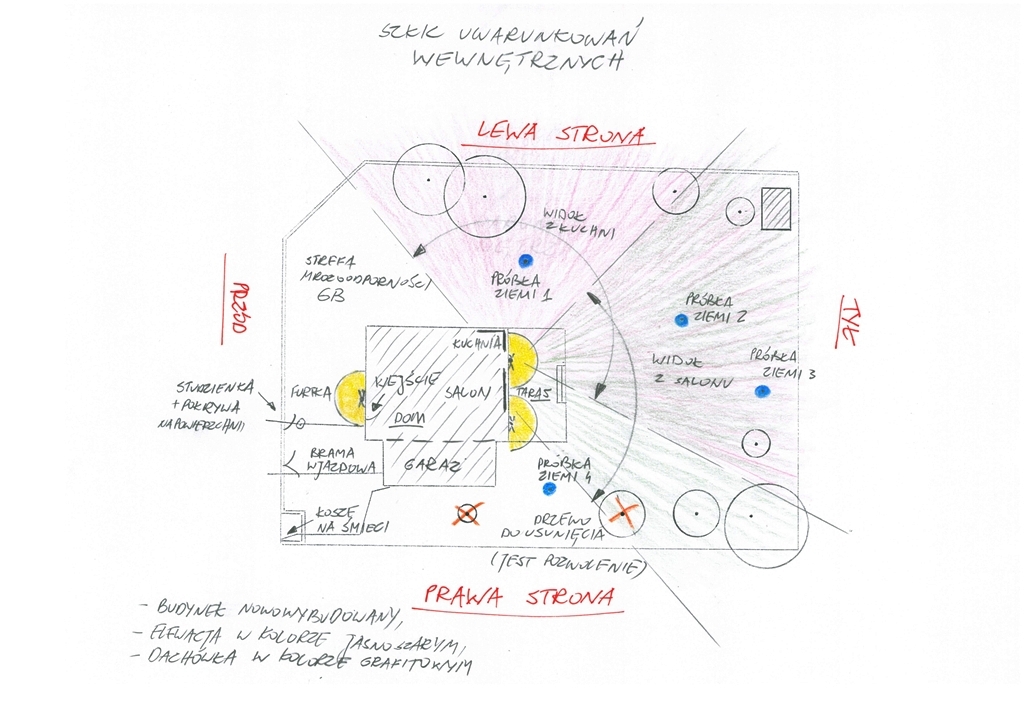 SZKIC UWARUNKOWAŃ
WEWNĘTRZNYCH
LEWA STRONA
WIDOK
Z KUCHNI
STREFA
MROZOODPORNOŚCI
6B
PRÓBKA
ZIEMI 1
PRÓBKA
ZIEMI 2
PRZÓD
TYŁ
KUCHNIA
PRÓBKA
ZIEMI 3
WIDOK
Z SALONU
STUDZIENKA
+ POKRYWA
NA POWIERZCHNI
FURTKA
WEJŚCIE
SALON
TARAS
DOM
BRAMA
WJAZDOWA
GARAŻ
PRÓBKA
ZIEMI 4
KOSZE
NA ŚMIECI
DRZEWO
DO USUNIĘCIA
(JEST POZWOLENIE)
PRAWA STRONA
- BUDYNEK NOWOWYBUDOWANY,
- ELEWACJA W KOLORZE JASNOSZARYM,
- DACHÓWKA W KOLORZE GRAFITOWYM